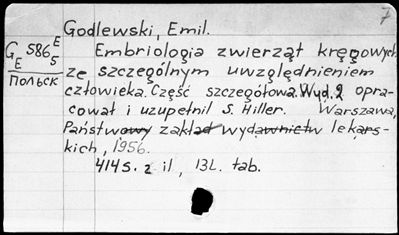 7
Godlewski, Emil.
G 586 E/5
E
Польск
Embriologia zwierząt kręgowych
ze szczególnym uwzględnieniem
człowieka. Część szczegółowa. Wyd. 2 opra-
cował i uzupełnił S. Hiller. Warszawa,
Państwowy zakład wydawnictw lekars-
kich, 1956.
414 s. z il, 13 L. tab.